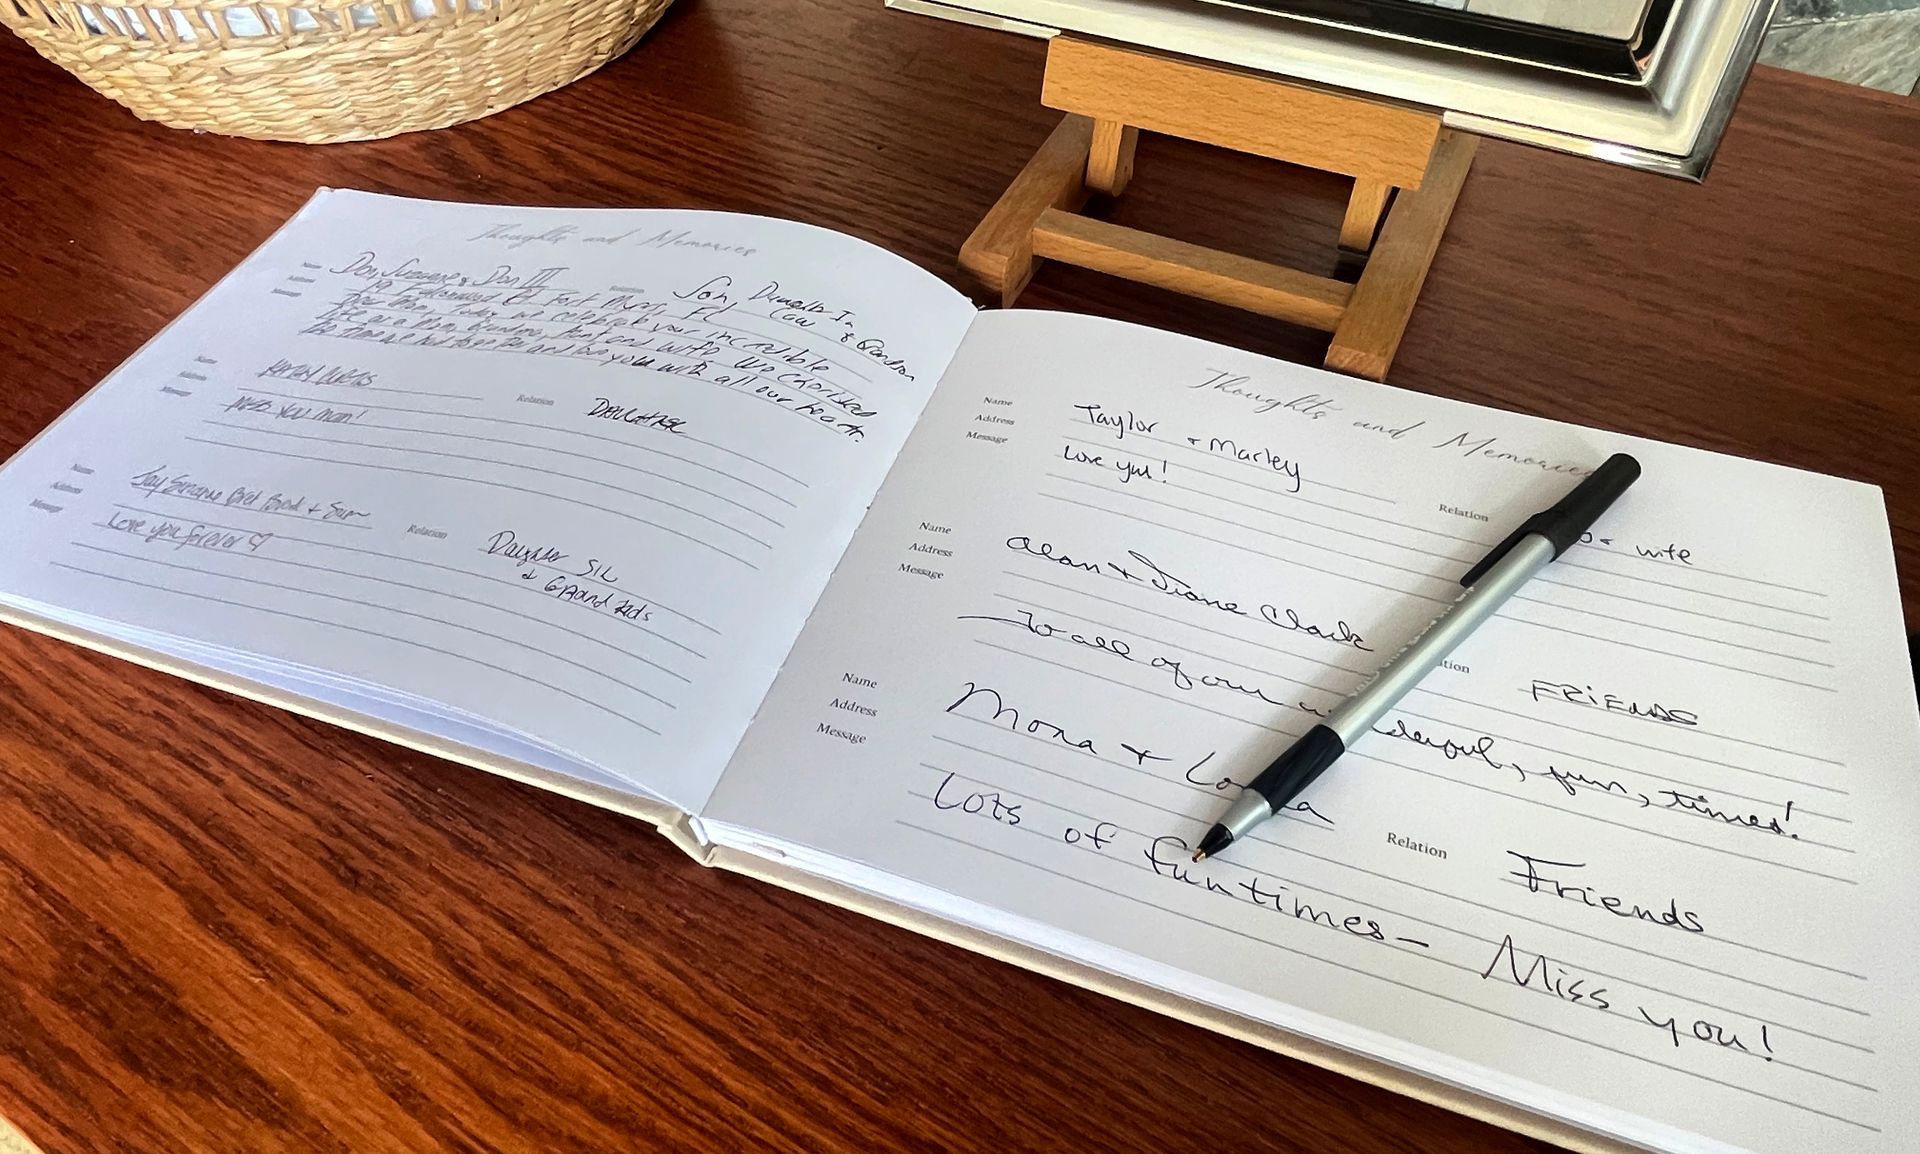 Thoughts and Memories
Name Don, Suzanne & Don III Relation Son, Daughter In
Address Fort Myers, FL Law & Grandson
Message Today we celebrate your incredible
life as a Mom, Grandma, Aunt and wife. We cherished
the time we had together and love you with all our heart.
Name Relation DAUGHTER
Address
Message MISS YOU MOM!
Name Jay Bret Brook + Sam Relation Daughter SIL
Address & Grand kids
Message Love you forever ♡
Thoughts and Memories
Name Taylor + Marley Relation wife
Address
Message Love you!
Name Alan + Diane Clark FRiENDS
Address
Message To all of our derful, fun, times!
Name Mona + Relation Friends
Address
Message Lots of fun times — Miss you!